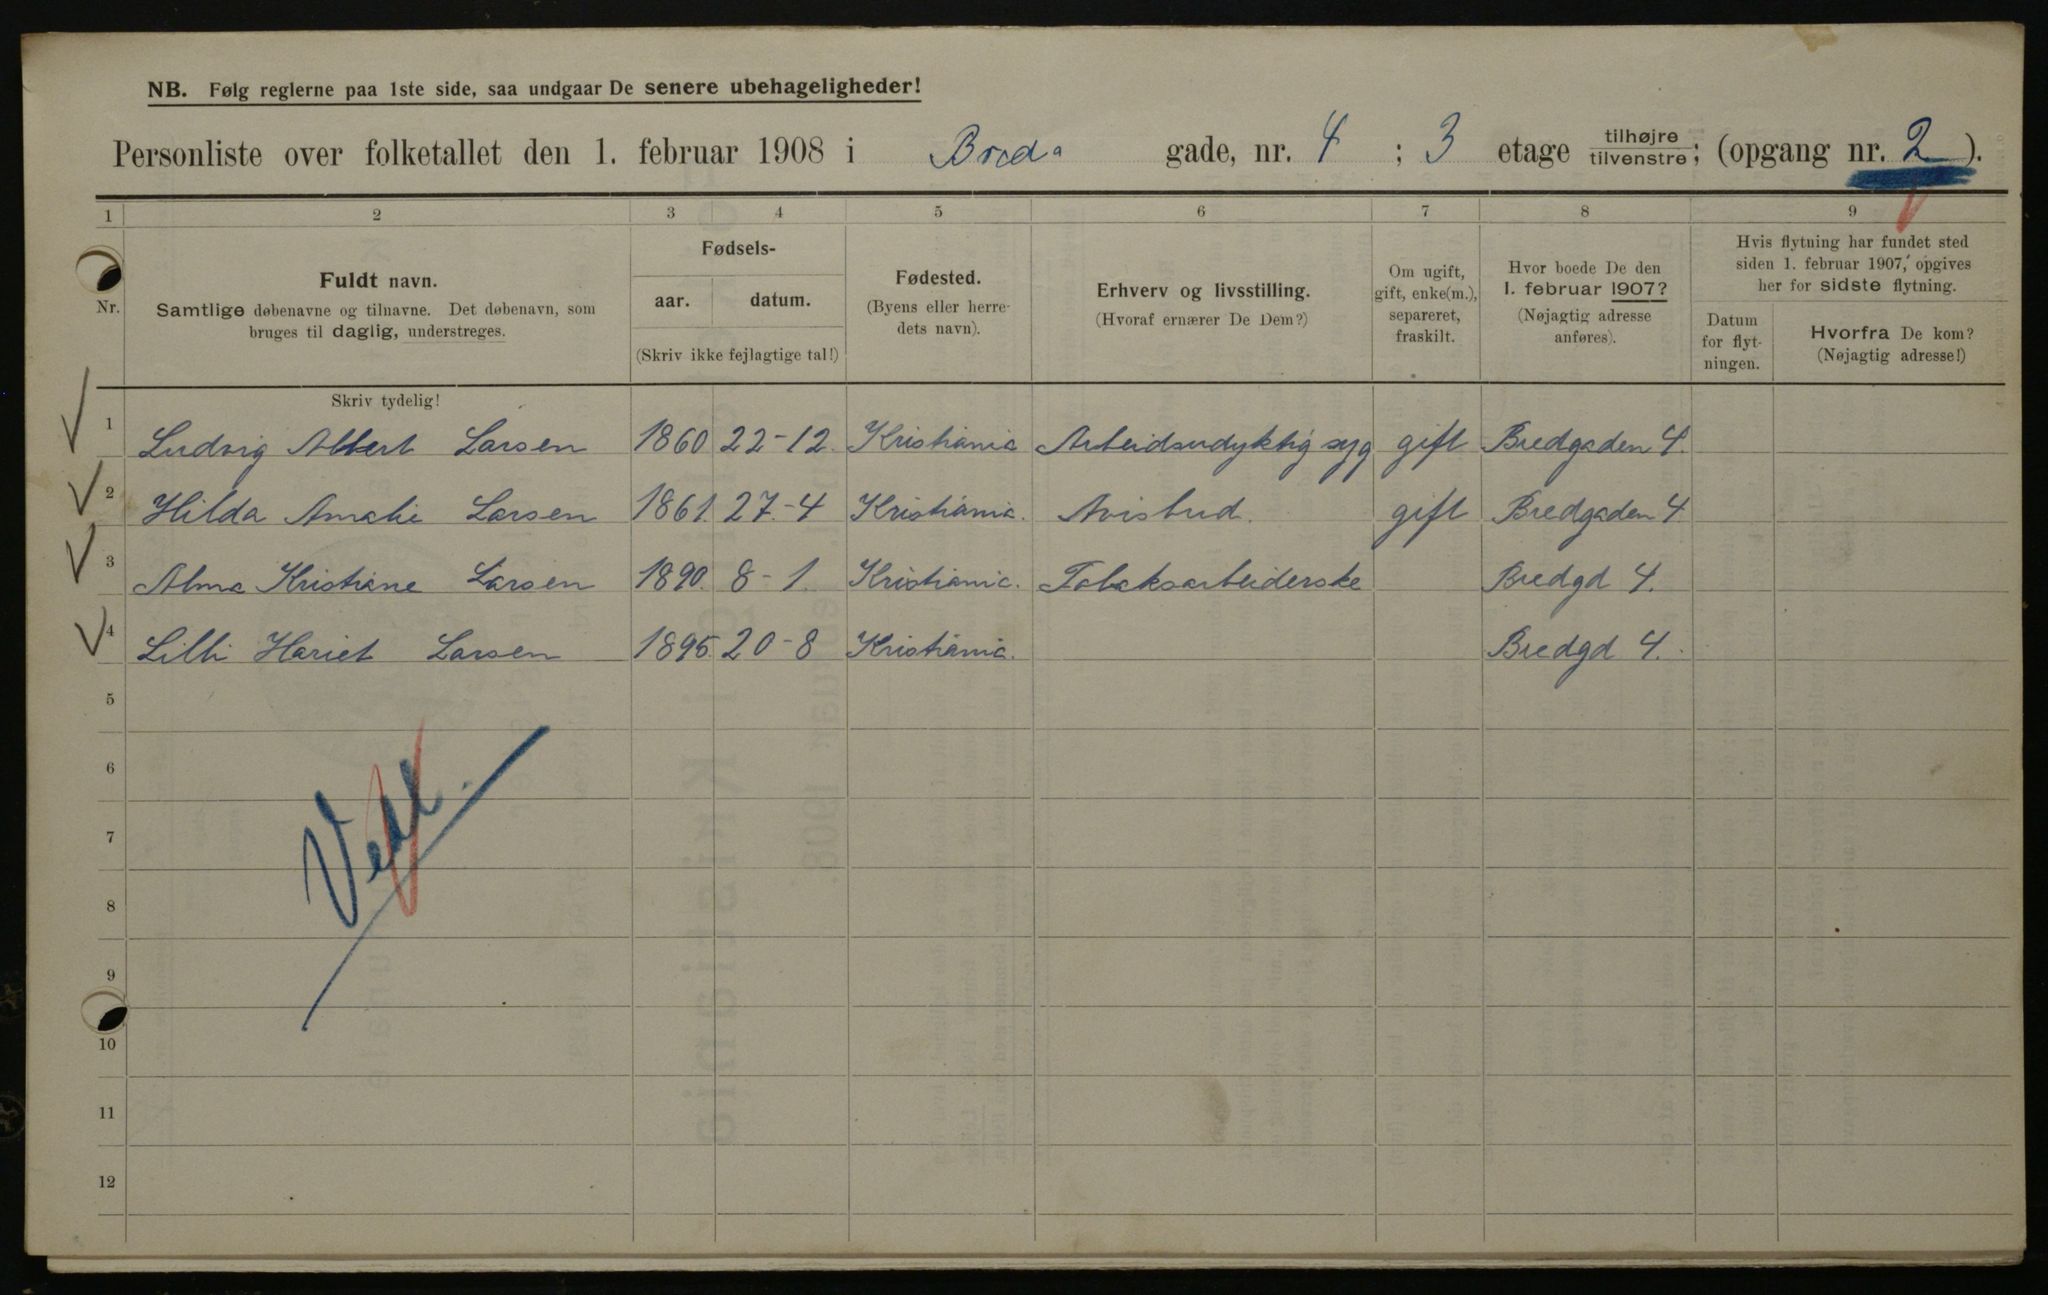 NB. Følg reglerne paa 1ste side, saa undgaar De senere ubehageligheder!
Personliste over folketallet den 1. februar 1908 i Bred gade, nr. 4 ; 3 etage tilhøjre tilvenstre; (opgang nr. 2 ).
1 2 3 4 5 6 7 8 9
Nr.
Fuldt navn.
Samtlige døbenavne og tilnavne. Det døbenavn, som
bruges til daglig, understreges.
Fødsels-
aar. datum.
(Skriv ikke fejlagtige tal!)
Fødested.
(Byens eller herre-
dets navn).
Erhverv og livsstilling.
(Hvoraf ernærer De Dem?)
Om ugift,
gift, enke(m.),
separeret,
fraskilt.
Hvor boede De den
1. februar 1907?
(Nøjagtig adresse
anføres).
Hvis flytning har fundet sted
siden 1. februar 1907, opgives
her for sidste flytning.
Datum
for flyt-
ningen.
Hvorfra De kom?
(Nøjagtig adresse!)
Skriv tydelig!
1 Ludvig Albert Larsen 1860 22-12. Kristiania Arbeidsudyktig syg gift Bredgaden 4.
2 Hilda Amalie Larsen 1861. 27.-4 Kristiania. Avisbud. gift Bredgaden 4
3 Alma Kristiane Larsen 1890. 8-1. Kristiania. Tobaksarbeiderske Bredgd 4.
4 Lilli Hariet Larsen 1895. 20-8 Kristiania. Bredgd 4.
5
6
7
8
9
10
11
12